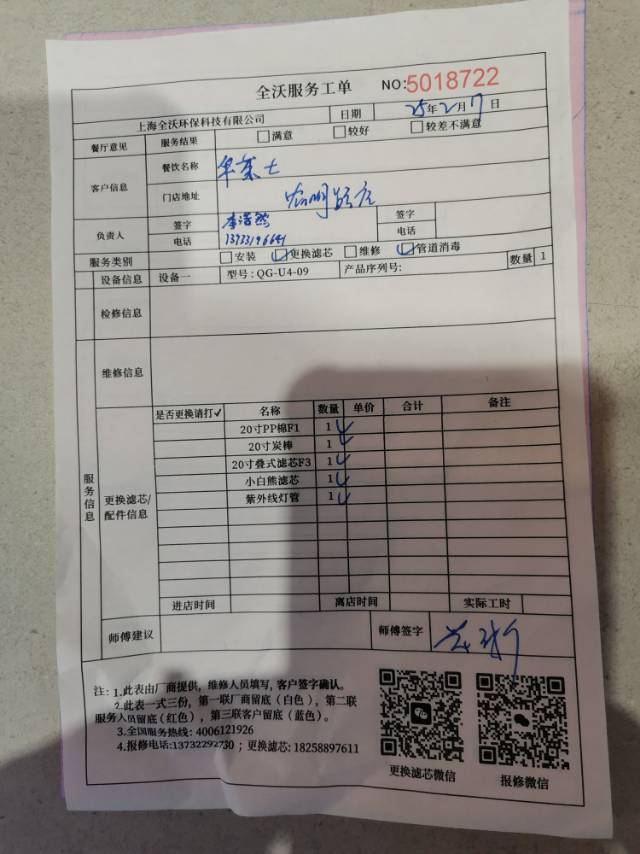 全沃服务工单 NO:5018722
上海全沃环保科技有限公司 日期 25年2月17日
餐厅意见 服务结果 满意 较好 较差不满意
客户信息 餐饮名称 华莱士
门店地址
负责人 签字 签字
电话 电话
服务类别 安装 更换滤芯 维修 管道消毒
设备信息 设备一 型号: QG-U4-09 产品序列号: 数量 1
检修信息
维修信息
服务信息
更换滤芯/配件信息
是否更换请打✓ 名称 数量 单价 合计 备注
20寸PP棉F1 1 ✓
20寸炭棒 1 ✓
20寸叠式滤芯F3 1 ✓
小白熊滤芯 1 ✓
紫外线灯管 1 ✓
进店时间 离店时间 实际工时
师傅建议 师傅签字
注: 1.此表由厂商提供，维修人员填写, 客户签字确认。
2.此表一式三份，第一联厂商留底（白色），第二联
服务人员留底（红色），第三联客户留底（蓝色）。
3.全国服务热线: 4006121926
4.报修电话:13732292730 ; 更换滤芯: 18258897611
更换滤芯微信 报修微信